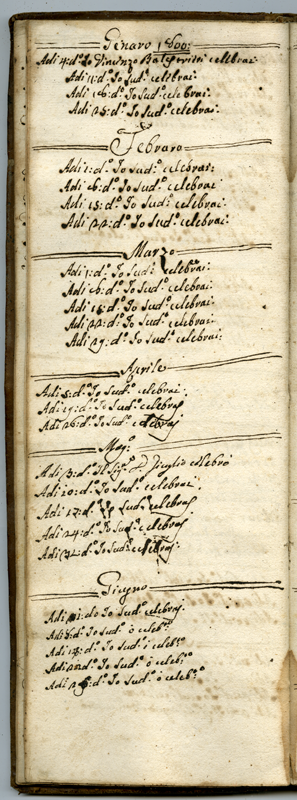 Genaro 1800:
Adi 4: d.º Io Vincenzo celebrai:
Adi 11: d.º Io sud.º celebrai:
Adi 18: d.º Io sud.º celebrai:
Adi 25: d.º Io sud.º celebrai:
Febraro
Adi 1: d.º Io sud.º celebrai:
Adi 8: d.º Io sud.º celebrai
Adi 15: d.º Io sud.º celebrai
Adi 22: d.º Io sud.º celebrai:
Marzo
Adi 1: d.º Io sud.º celebrai:
Adi 8: d.º Io sud.º celebrai:
Adi 15: d.º Io sud.º celebrai:
Adi 22: d.º Io sud.º celebrai:
Adi 29: d.º Io sud.º celebrai:
Aprile
Adi 5: d.º Io sud.º celebrai:
Adi d.º Io sud.º celebraj
Adi 26: d.º Io sud.º celebraj
Mag.º
Adi 3: d.º Il Sig.r D. Giuglio celebrò
Adi 10: d.º Io sud.º celebrai
Adi 17: d.º Io sud.º celebraj
Adi 24: d.º Io sud.º celebraj
Adi 31: d.º Io sud.º celebraj:
Giugno
Adi d.º Io sud.º celebraj.
Adi d.º Io sud.º ò celeb.to
Adi d.º Io sud.º ò celeb.to
Adi d.º Io sud.º ò celeb.to
Adi d.º Io sud.º ò celeb.to